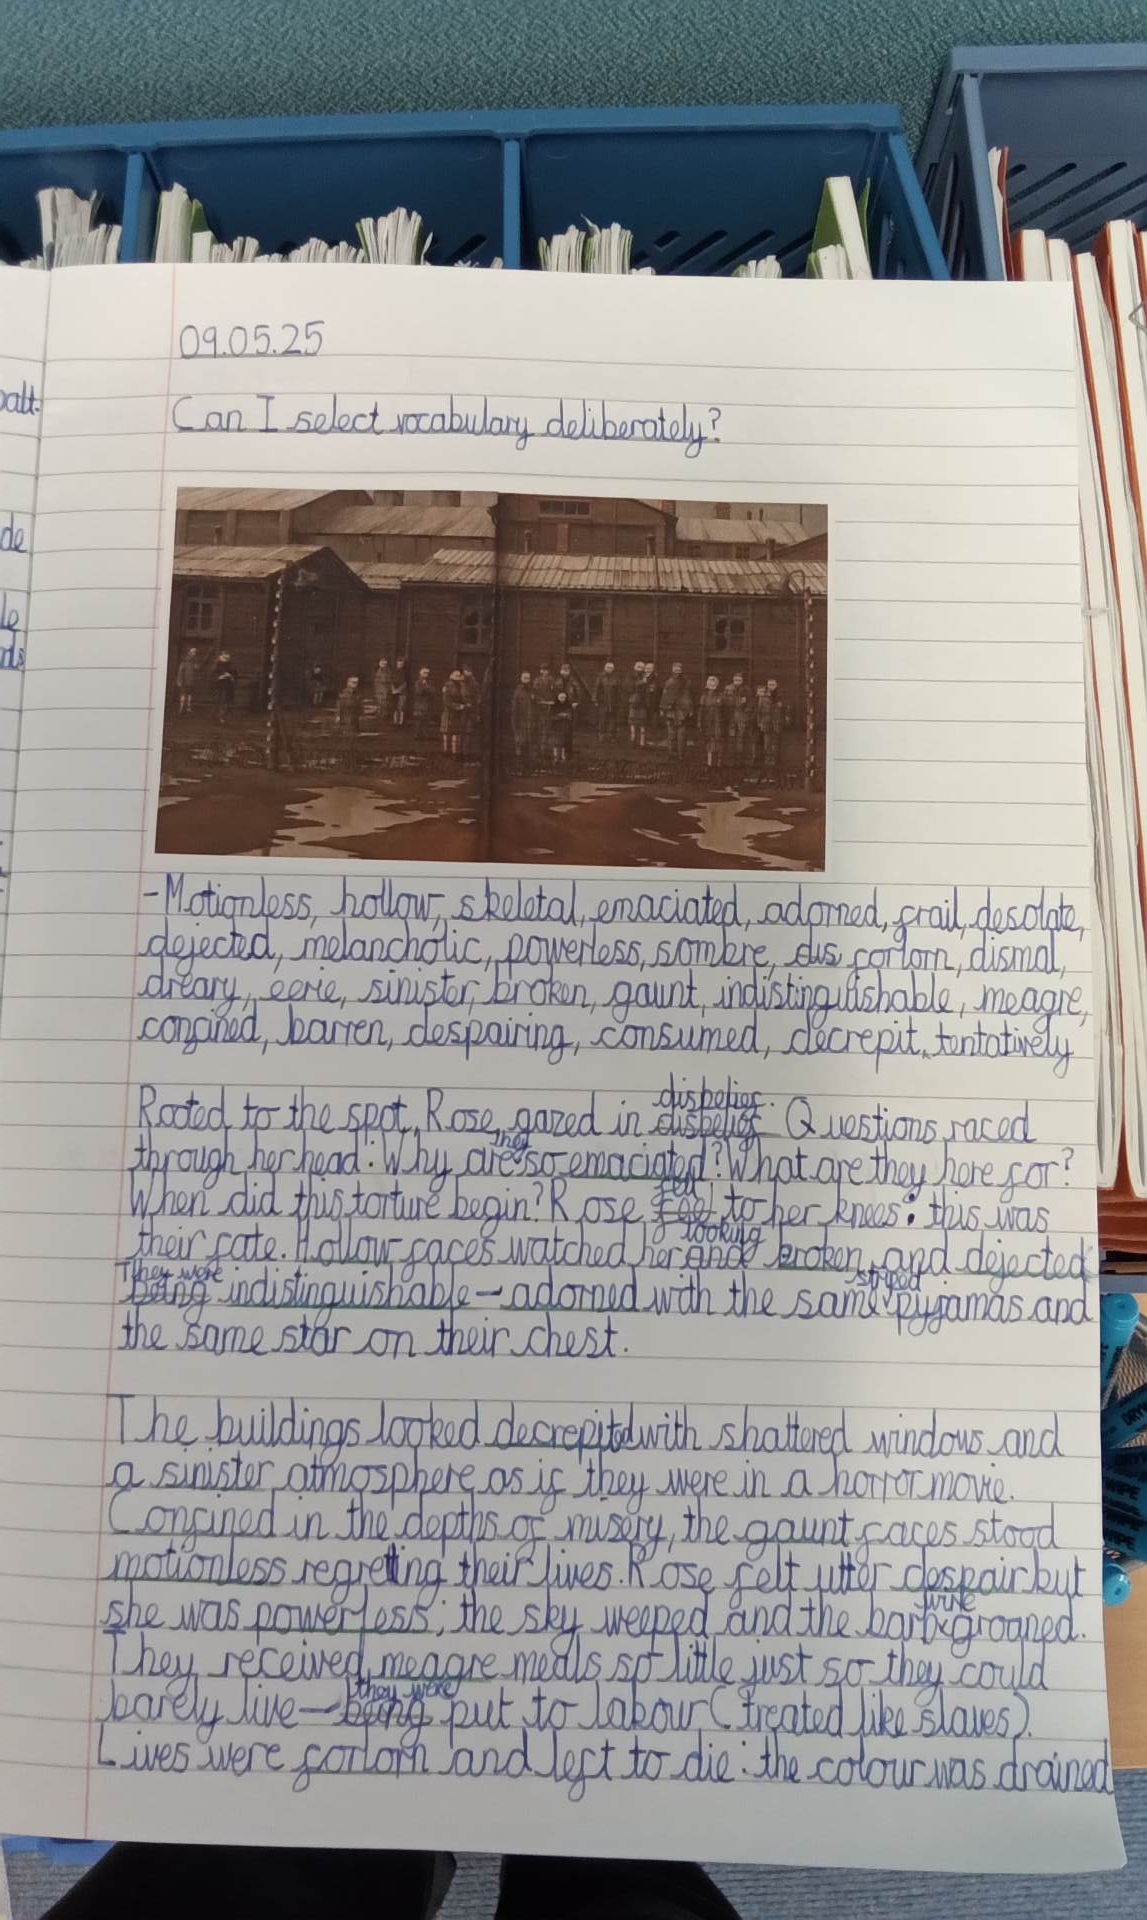 09.05.25
Can I select vocabulary deliberately?
-Motionless, hollow, skeletal, emaciated, adorned, frail, desolate,
dejected, melancholic, powerless, sombre, dis forlorn, dismal,
dreary, eerie, sinister, broken, gaunt, indistinguishable, meagre,
confined, barren, despairing, consumed, decrepit, tentatively
disbelief.
Rooted to the spot, Rose gazed in disbelief Questions raced
they
through her head: Why are so emaciated? What are they here for?
fell
When did this torture begin? Rose feel to her knees: this was
looking
their fate. Hollow faces watched her and broken and dejected
They were striped
being indistinguishable - adorned with the same pyjamas and
the same star on their chest.
The buildings looked decrepited with shattered windows and
a sinister atmosphere as if they were in a horror movie.
Confined in the depths of misery, the gaunt faces stood
motionless regretting their lives. Rose felt utter despair but
wire
she was powerless; the sky weeped and the barb groaned.
They received meagre meals so little just so they could
they were
barely live - being put to labour (treated like slaves).
Lives were forlorn and left to die: the colour was drained
patt.
de